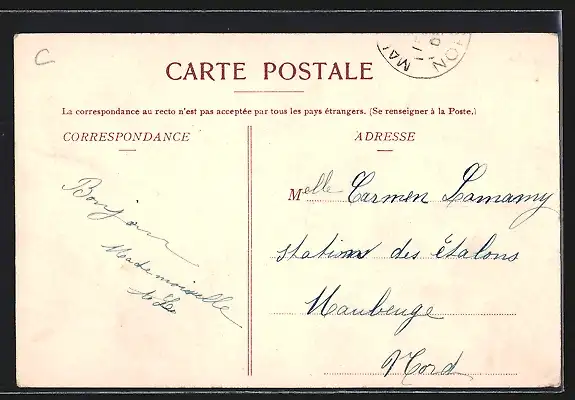 C
CARTE POSTALE
La correspondance au recto n'est pas acceptée par tous les pays étrangers. (Se renseigner à la Poste.)
CORRESPONDANCE
Bonjour
Mademoiselle
ADRESSE
Melle Carmen Lamamy
Station des étalons
Maubeuge
Nord